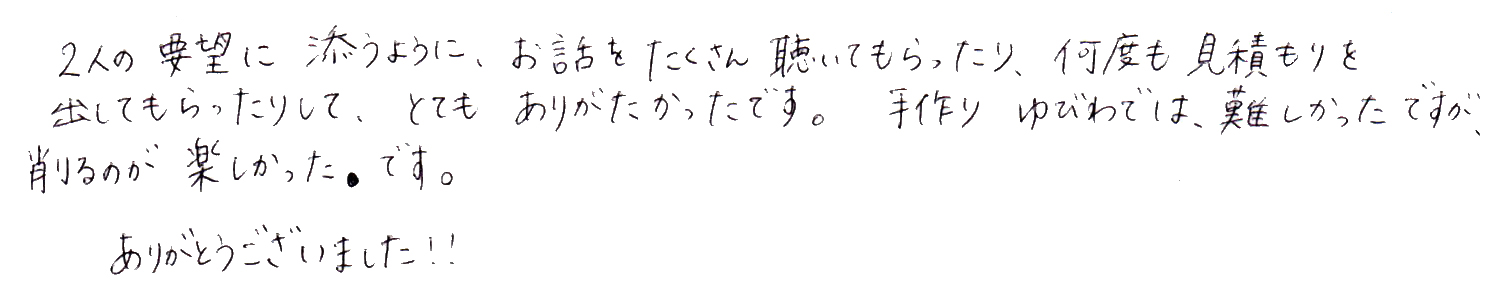 2人の 要望に 添うように、お話を たくさん 聴いてもらったり、何度も 見積もりを
出してもらったりして、とても ありがたかったです。 手作り ゆびわでは、難しかったですが、
削るのが 楽しかった.です。
ありがとうございました!!